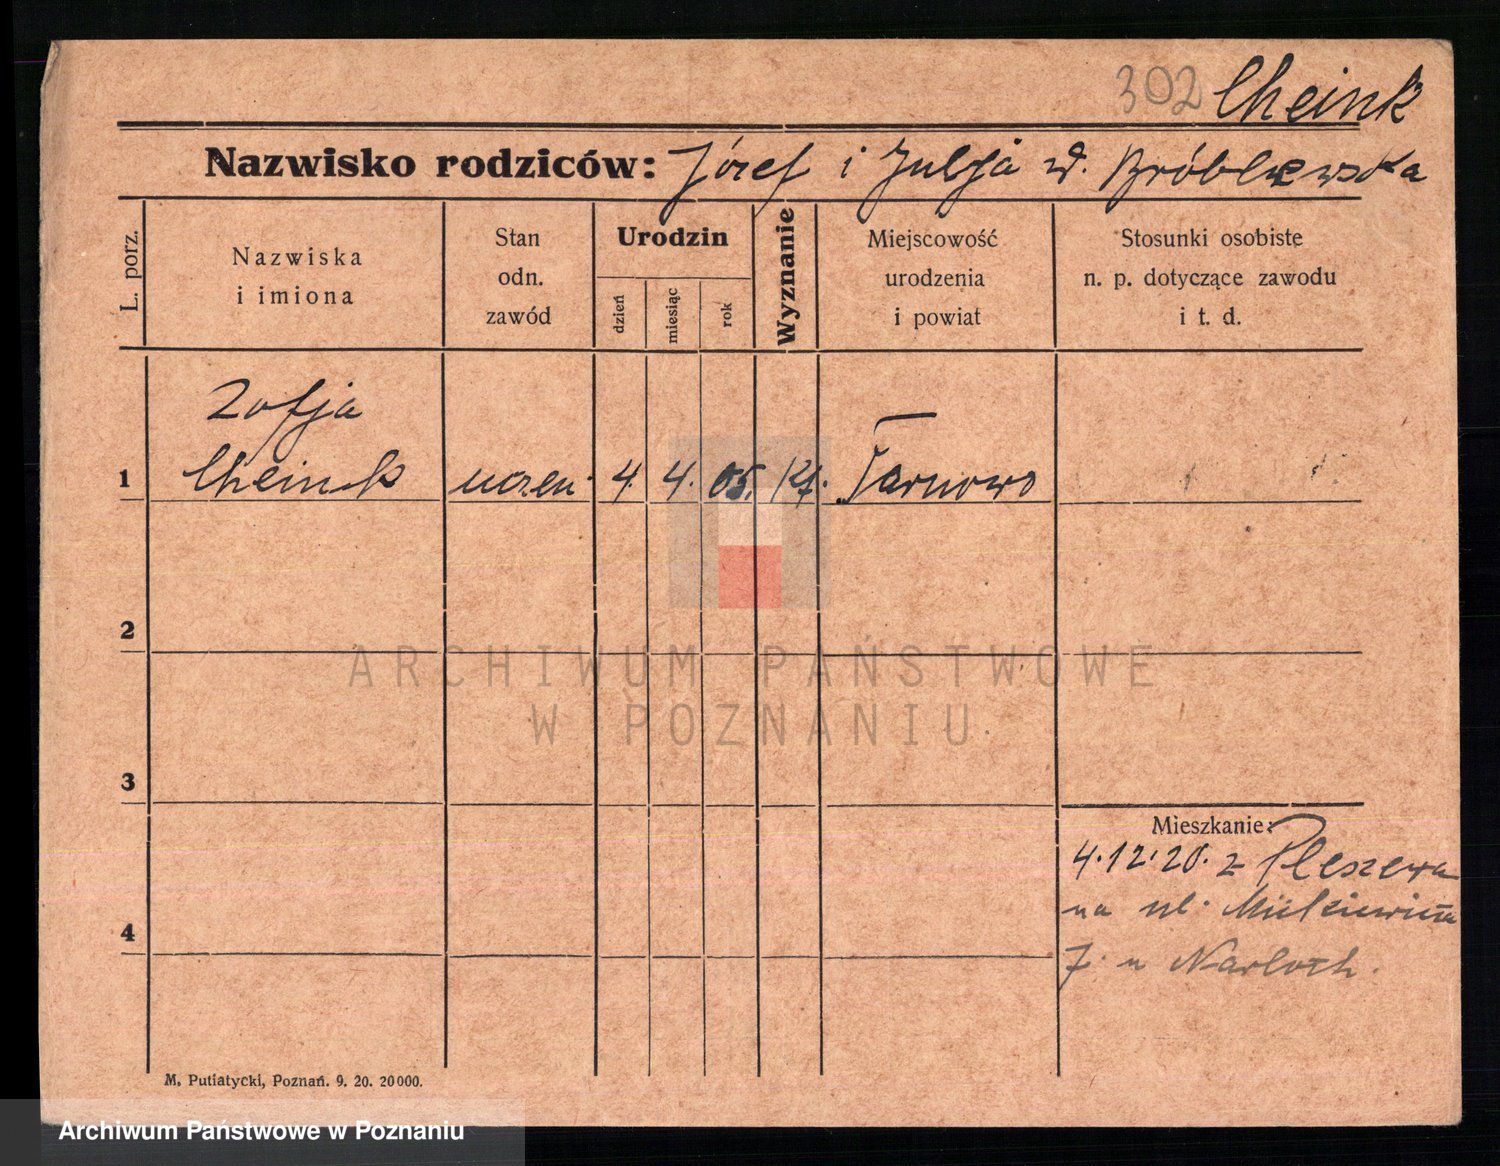 302 Cheink
Nazwisko rodziców: Józef i Julja d. Bróblewska
L. porz.
Nazwiska
i imiona
Stan
odn.
zawód
Urodzin
dzień
miesiąc
rok
Wyznanie
Miejscowość
urodzenia
i powiat
Stosunki osobiste
n. p. dotyczące zawodu
i t. d.
1
Zofja
Cheink
uczen.
4. 4. 05. Kt. Tarnowo
2
ARCHIWUM PAŃSTWOWE
W POZNANIU
3
Mieszkanie:
4.12.20. z Pleszewa
na ul. Mickiewicza
4
7. u Narloch.
M. Putiatycki, Poznań. 9. 20. 20000.
Archiwum Państwowe w Poznaniu